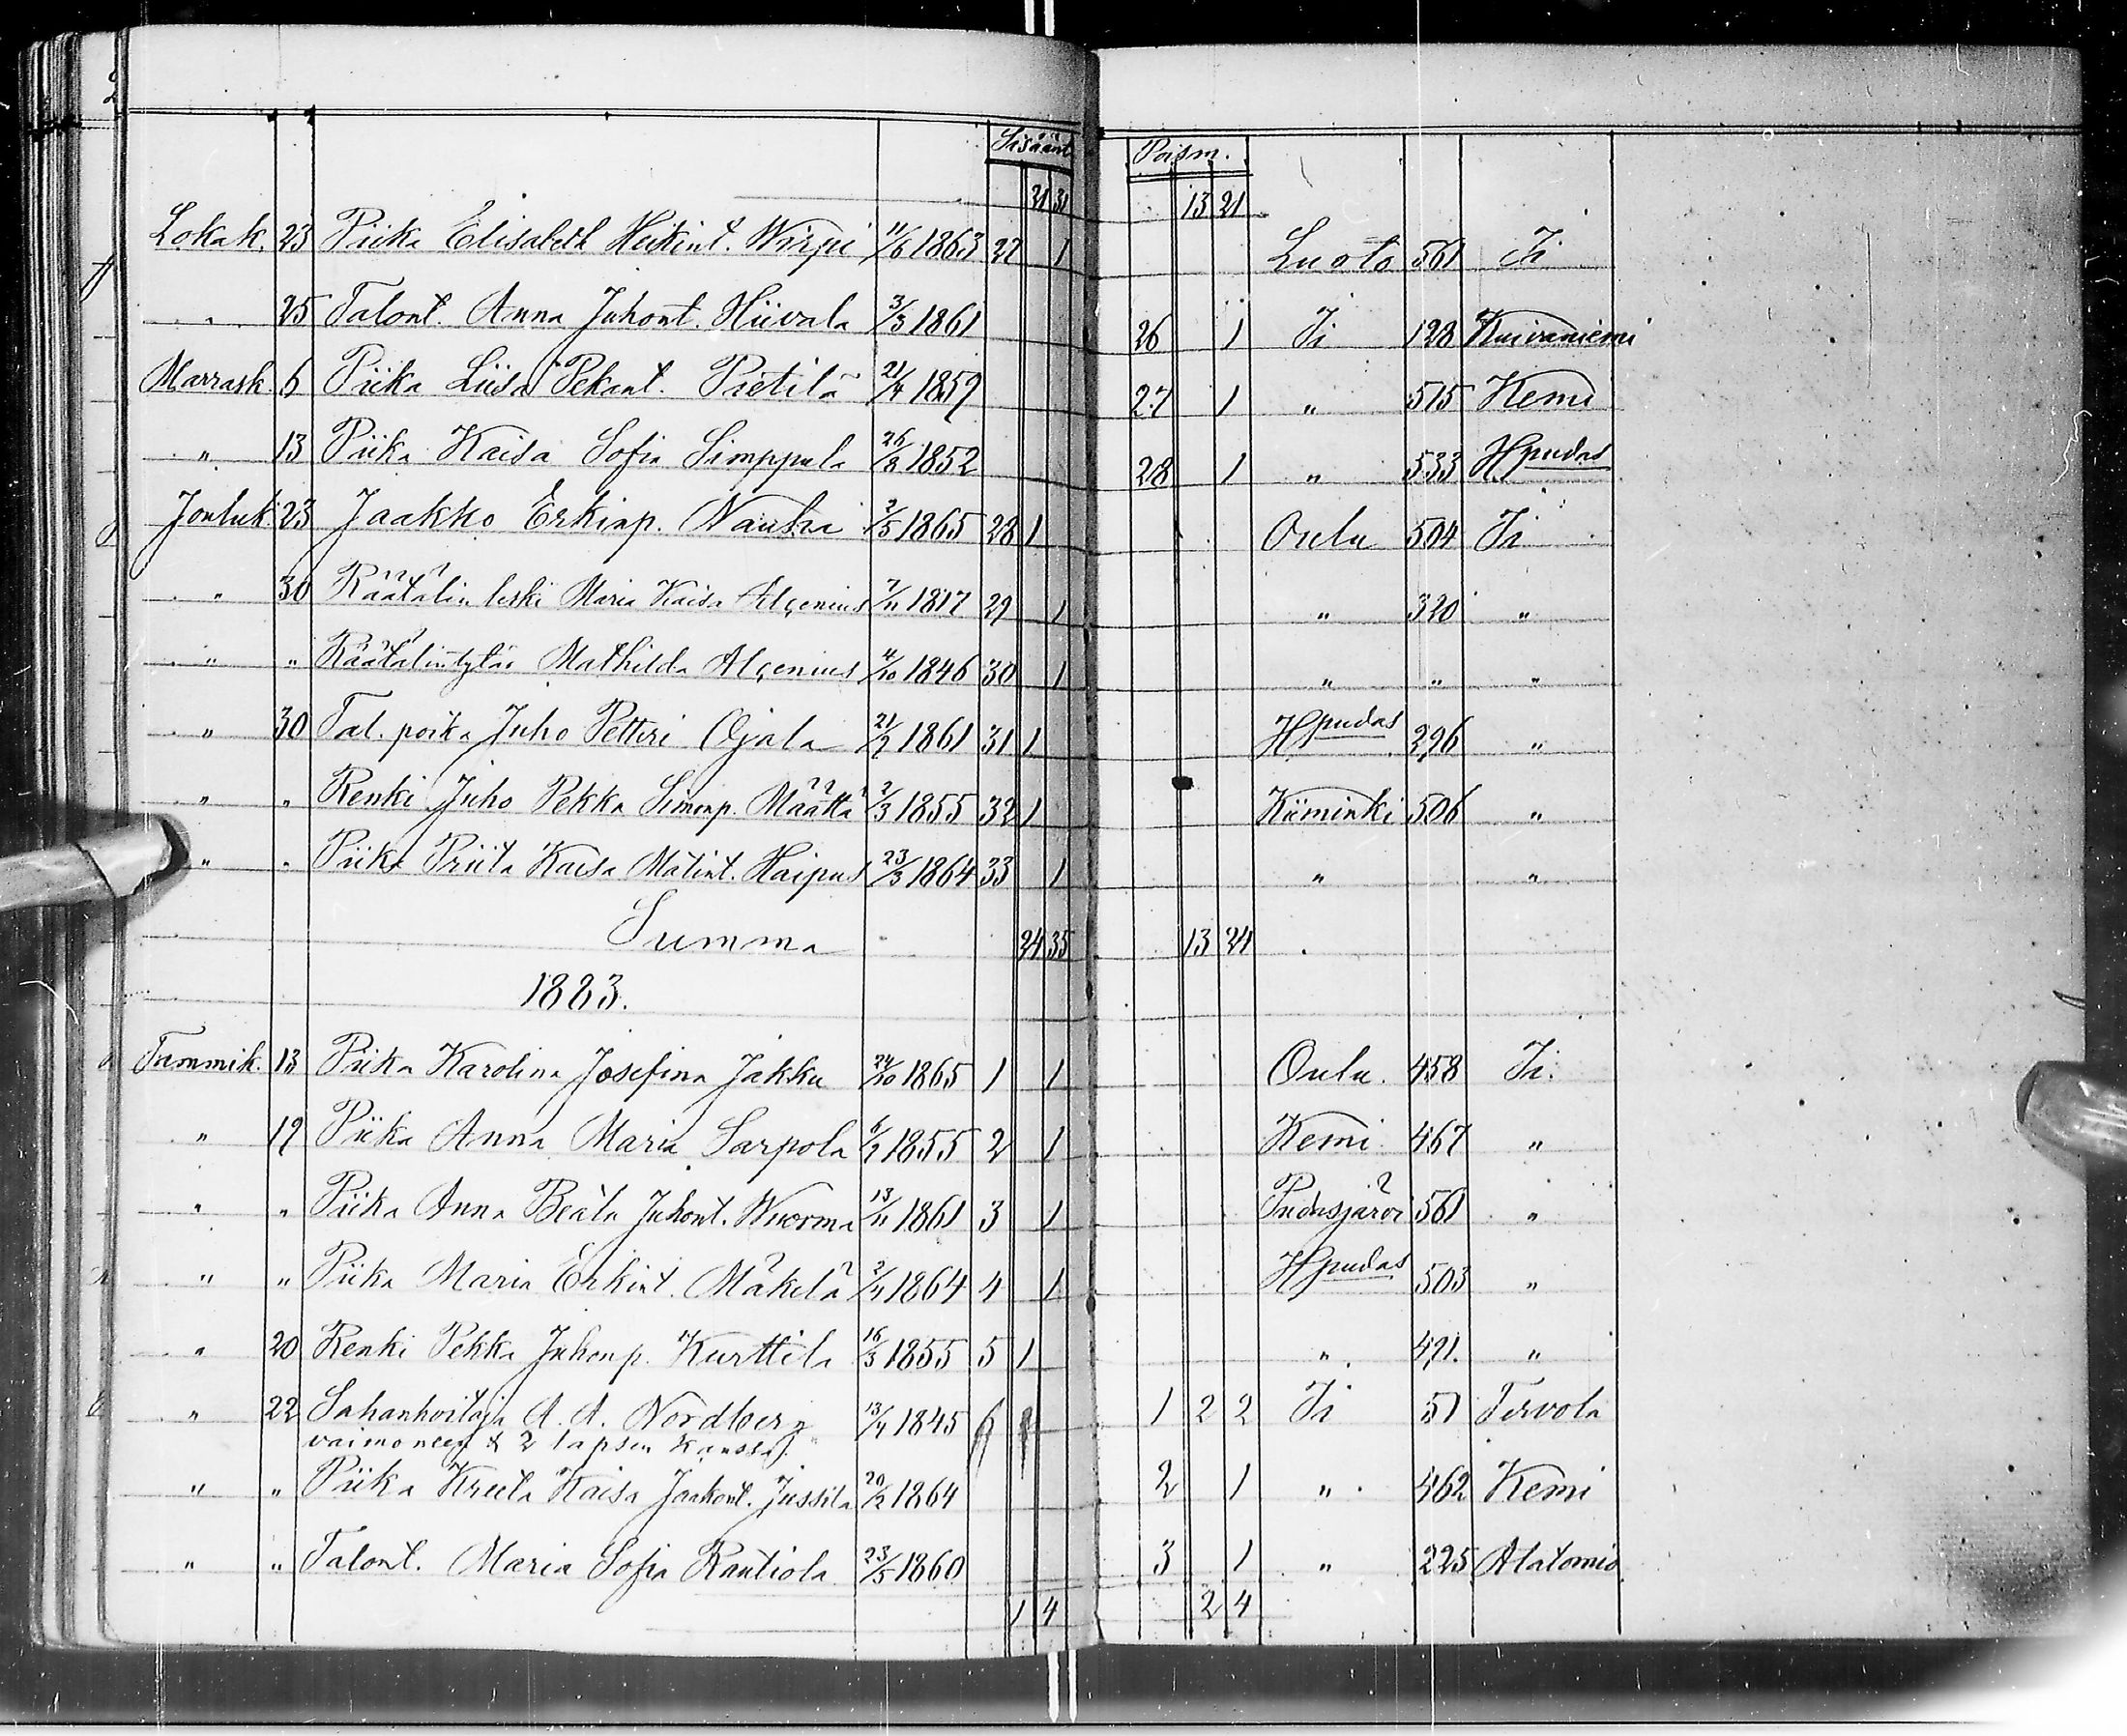 Sisäänt Poism.
21 31 13 21
Lokak. 23 Piika Elisabeth Heikint. Wirpi 11/6 1863 27 1 Luoto 561 Ii
" 25 Talont. Anna Juhont. Hiivala 3/3 1861 26 1 Ii 128 Kuivaniemi
Marrask. 6 Piika Liisa Pekant. Pietilä 21/4 1859 27 1 " 515 Kemi
" 13 Piika Kaisa Sofia Simppala 26/8 1852 28 1 " 533 Hpudas
Jouluk. 23 Jaakko Erkinp. 2/5 1865 28 1 Oulu 504 Ii
" 30 Räätälin leski Maria Kaisa Alcenius 7/11 1817 29 1 " 320 "
" " Räätälintytär Mathilda Alcenius 4/10 1846 30 1 " " "
" 30 Tal. poika Juho Petteri Ojala 21/2 1861 31 1 Hpudas 296 "
" " Renki Juho Pekka Simonp. Määttä 2/3 1855 32 1 Kiiminki 506 "
" " Piika Priita Kaisa Matint. Haipus 23/3 1864 33 1 " "
Summa 24 35 13 24
1883.
Tammik. 13 Piika Karolina Josefina Jakku 24/10 1865 1 1 Oulu. 458 Ii.
" 19 Piika Anna Maria Sarpola 6/2 1855 2 1 Kemi 467 "
" " Piika Anna Beata Juhont. Wuorma 13/11 1861 3 1 Pudasjärvi 561 "
" " Piika Maria Erkint. Mäkelä 2/4 1864 4 1 Hpudas 503 "
" 20 Renki Pekka Juhonp. Kurttila 16/3 1855 5 1 " 491. "
" 22 Sahanhoitaja A. A. Nordberg 13/4 1845 1 2 2 Ii 51 Tervola
vaimoneen & 2 lapsen kanssa).
" " Piika Kreeta Kaisa Jaakont. Jussila 20/2 1864 2 1 " 462 Kemi
" " Talont. Maria Sofia Rautiola 23/5 1860 3 1 " 225 Alatornio
1 4 2 4